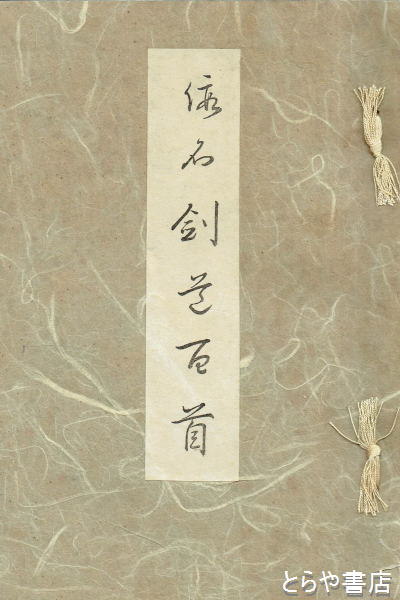 仮名剣道百首
とらや書店